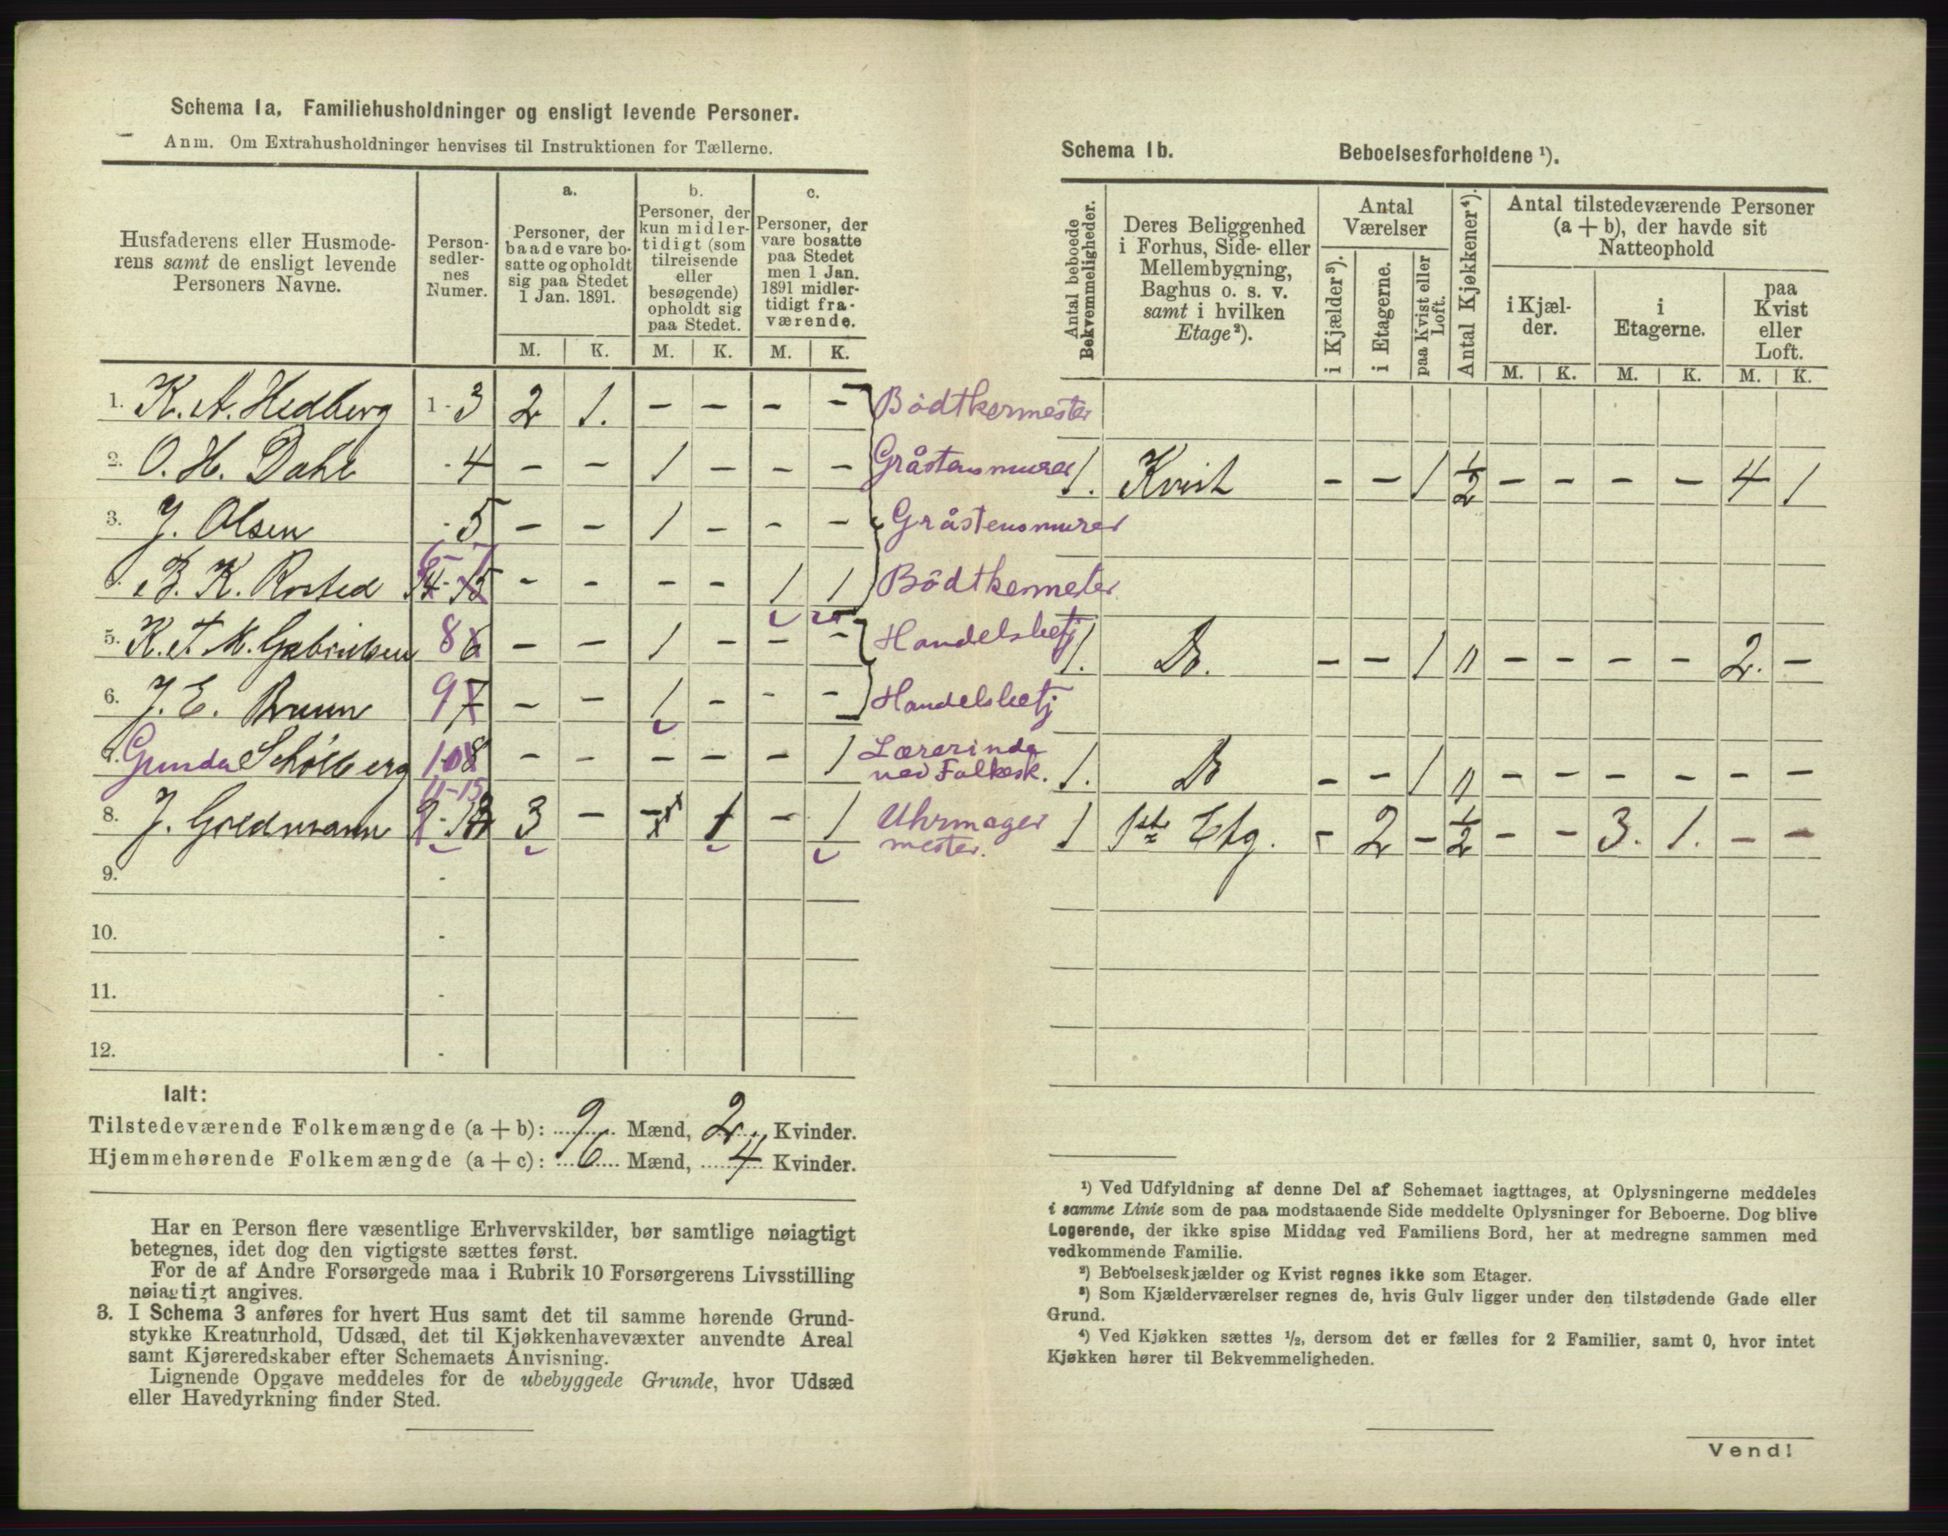 Schema 1a. Familiehusholdninger og ensligt levende Personer.
Anm. Om Extrahusholdninger henvises til Instruktionen for Tællerne.
Husfaderens eller Husmode-
rens samt de ensligt levende
Personers Navne.
Person-
sedler-
nes
Numer.
a.
Personer, der
baade vare bo-
satte og opholdt
sig paa Stedet
1 Jan. 1891.
b.
Personer, der
kun midler-
tidigt (som
tilreisende
eller
besøgende)
opholdt sig
paa Stedet.
c.
Personer, der
vare bosatte
paa Stedet
men 1 Jan.
1891 midler-
tidigt fra-
værende.
M. K. M. K. M. K.
1. K. A. Hedberg 1-3 2 1. - - - - Bödtkermester
2. O. H. Dahl -4 - - 1 - - - Gråstensmurer
3. J. Olsen -5 - - 1 - - - Gråstensmurer
B. K. Rosted 6-7 - - - - 1 1 Bödtkermeter
5. K. F. M. Gabrielsen 8 - - 1 - - - Handelsbetj
6. J. E. Bruun 9 - - 1 - - - Handelsbetj
Gunda Schølberg 10 - - - - - 1 Lærerinde
ved Folkesk.
8. J. Goldmann 11-15 3 - - 1 - 1 Uhrmager
mester.
9. -
10. -
11. -
12. -
Ialt:
Tilstedeværende Folkemængde (a + b): 9 Mænd, 2 Kvinder.
Hjemmehørende Folkemængde (a + c): 6 Mænd, 4 Kvinder.
Har en Person flere væsentlige Erhvervskilder, bør samtlige nøiagtigt
betegnes, idet dog den vigtigste sættes først.
For de af Andre Forsørgede maa i Rubrik 10 Forsørgerens Livsstilling
nøiagtigt angives.
3. I Schema 3 anføres for hvert Hus samt det til samme hørende Grund-
stykke Kreaturhold, Udsæd, det til Kjøkkenhavevæxter anvendte Areal
samt Kjøreredskaber efter Schemaets Anvisning.
Lignende Opgave meddeles for de ubebyggede Grunde, hvor Udsæd
eller Havedyrkning finder Sted.
Schema 1b. Beboelsesforholdene ¹).
Antal beboede
Bekvemmeligheder.
Deres Beliggenhed
i Forhus, Side- eller
Mellembygning,
Baghus o. s. v.
samt i hvilken
Etage²).
Antal
Værelser
i Kjælder³).
i Etagerne.
paa Kvist eller
Loft.
Antal Kjøkkener⁴).
Antal tilstedeværende Personer
(a + b), der havde sit
Natteophold
i Kjæl-
der.
i
Etagerne.
paa
Kvist
eller
Loft.
M. K. M. K. M. K.
1. Kvist - - 1 ½ - - - - 4 1
1. Do. - - 1 " - - - - 2. -
1. Do - - 1 " - - - - - -
1 1ste Etg. - 2 - ½ - - 3. 1. - -
¹) Ved Udfyldning af denne Del af Schemaet iagttages, at Oplysningerne meddeles
i samme Linie som de paa modstaaende Side meddelte Oplysninger for Beboerne. Dog blive
Logerende, der ikke spise Middag ved Familiens Bord, her at medregne sammen med
vedkommende Familie.
²) Beboelseskjælder og Kvist regnes ikke som Etager.
³) Som Kjælderværelser regnes de, hvis Gulv ligger under den tilstødende Gade eller
Grund.
⁴) Ved Kjøkken sættes ½, dersom det er fælles for 2 Familier, samt 0, hvor intet
Kjøkken hører til Bekvemmeligheden.
Vend!